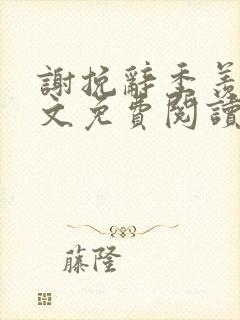 謝挽辭季羨
文免費閱讀
藤隆